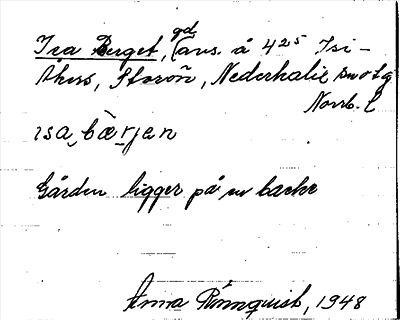 Isa Berget, gd (avs. å 4²⁵ Isi-
Åkers, Storön, Nederkalix sn o tg
Norrb. l
isa bærjen
Gården ligger på en backe
Anna Rönnquist, 1948